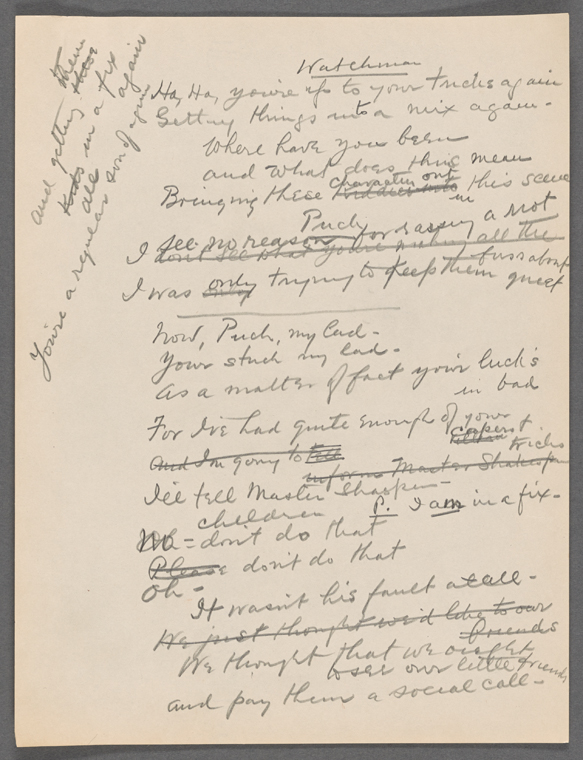 Watchman
Ha, Ha, you're up to your tricks again
Getting things into a mix again -
Where have you been
and what does this mean
Bringing these character out in this scene
Puck
I see no reason for raising a riot
don't see what you're making all the fuss about
I was only trying to keep them quiet
Now, Puck, my lad -
Your stuck my lad -
As a matter of fact your luck's
in bad
For I've had quite enough of your
capers &
tricks
And I'm going to tell
inform Master Shakespear
I'll tell Master Shakspear -
P. I am in a fix -
children
No - don't do that
Please don't do that
Oh -
It wasn't his fault atall -
We just thought we'd like to our
friends
We thought that we ought
to see our little friends
and pay them a social call -
and getting them
kids in a fix
all again
You're a regular son of a gun